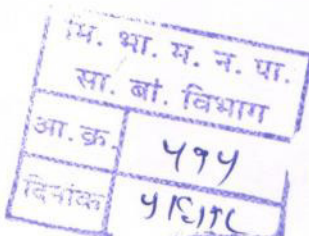 मि. भा. म. न. पा.
सा. बां. विभाग
आ. क्र. ५१५
दिनांक ५/६/१८